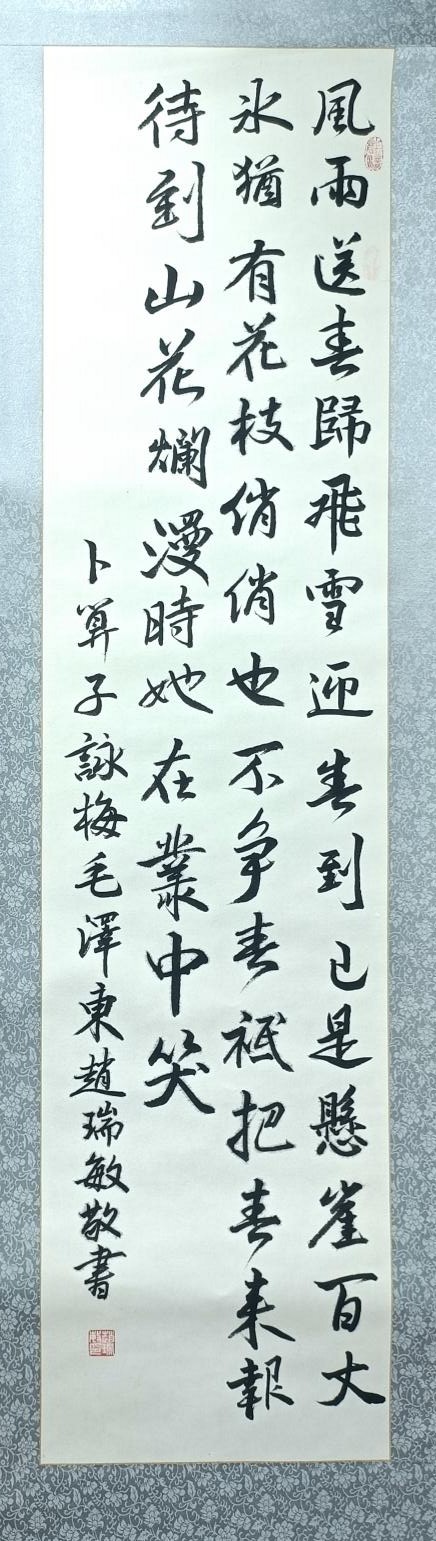 風雨送春歸飛雪迎春到已是懸崖百丈
冰猶有花枝俏俏也不争春祇把春来報
待到山花爛漫時她在叢中笑
卜算子詠梅毛澤東趙瑞敏敬書